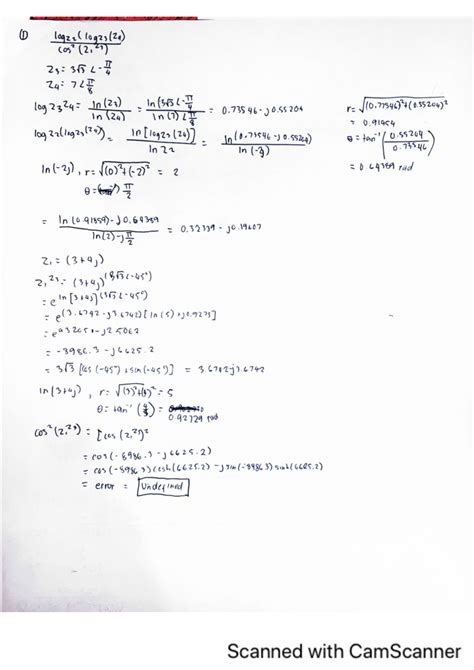 ① log z₂ ( log z₃ (z₄)
cos² (z₁^z₃)
z₃ = 3√3 ∠ -π/4
z₄ = 7 ∠ π/8
log z₃ z₄ = ln (z₃) / ln (z₄) = ln (3√3 ∠ -π/4) / ln (7) ∠ π/8 = 0.73546 - j0.55204
r = √(0.73546)²+(0.55204)²
= 0.91959
θ = tan⁻¹ (0.55204 / 0.73546)
= 0.64389 rad
log z₂ (log z₃ (z₄)) = ln [log z₃ (z₄)] / ln z₂ = ln (0.73546 - j0.55204) / ln (-2j)
ln (-2j), r = √(0)²+(-2)² = 2
θ = π/2
= ln (0.91959) - j0.64389 / ln(2) - j π/2 = 0.32739 - j0.19607
z₁ = (3+4j)
z₁^z₃ = (3+4j)^(3√3 ∠ -45°)
= e^ln [3+4j] (3√3 ∠ -45°)
= e^(3.6742 - j3.6742) [ln (5) + j0.9273]
= -8986.3 - j6625.2
= 3√3 [cos (-45°) + sin (-45°)] = 3.6742 j3.6742
ln (3+4j), r = √(3)²+(4)² = 5
θ = tan⁻¹ (4/3) =
0.92729 rad
cos² (z₁^z₃) = [cos (z₁^z₃)]²
= cos (-8986.3 - j6625.2)
= cos (-8986.3) cosh (6625.2) - j sin (-8986.3) sinh (6625.2)
= error = Undefined
Scanned with CamScanner